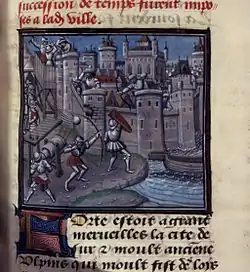 succession de temps furent impo
ses a lad ville.
Orte estoit a traint
merveilles la cite de
sur & moult anciene
Ulpins qui moult fist de lois